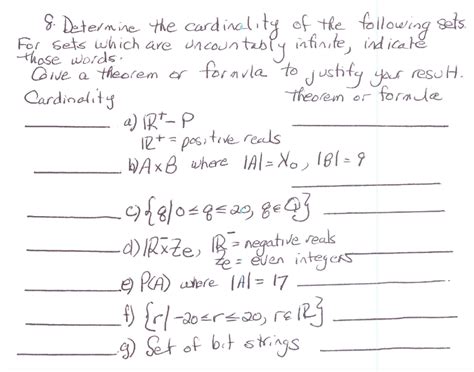 8. Determine the cardinality of the following sets.
For sets which are uncountably infinite, indicate
those words.
Give a theorem or formula to justify your result.
Cardinality theorem or formula
a) ℝ⁺ − P
ℝ⁺ = positive reals
b) A × B where |A| = ℵ₀, |B| = 9
c) {q | 0 ≤ q ≤ 20, q ∈ ℚ}
d) ℝ⁻ × Ze, ℝ⁻ = negative reals
Ze = even integers
e) P(A) where |A| = 17
f) {r | -20 ≤ r ≤ 20, r ∈ ℝ}
g) Set of bit strings